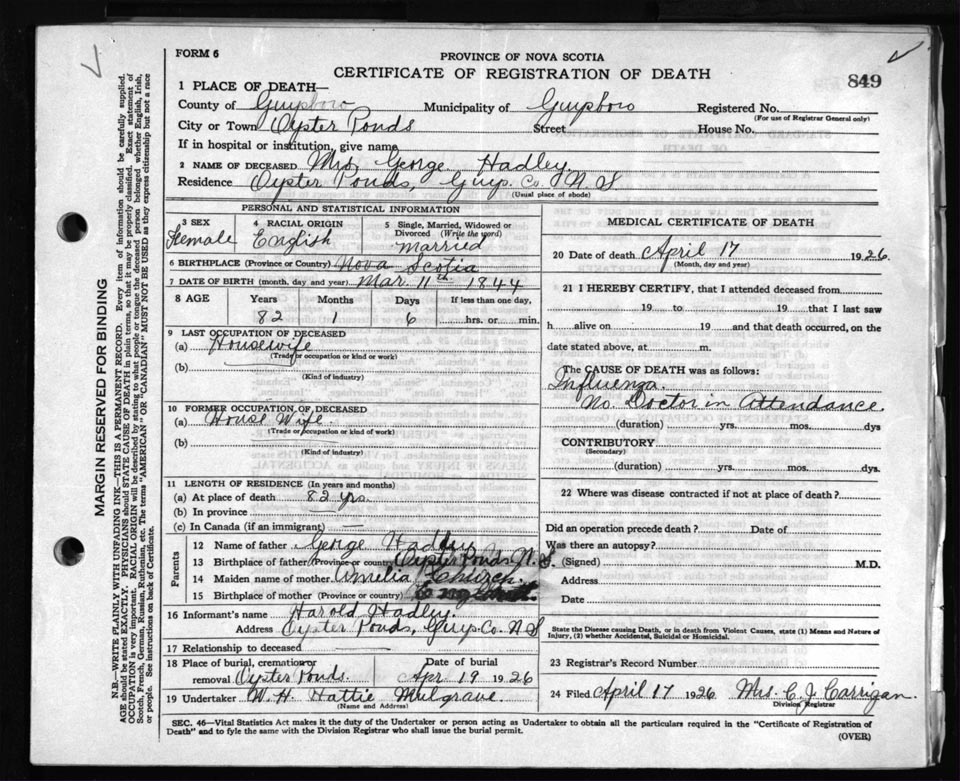 FORM 6
PROVINCE OF NOVA SCOTIA
CERTIFICATE OF REGISTRATION OF DEATH
849
1 PLACE OF DEATH—
County of Guysboro Municipality of Guysboro Registered No.
(For use of Registrar General only)
City or Town Oyster Ponds Street House No.
If in hospital or institution, give name
2 NAME OF DECEASED Mrs. George Hadley.
Residence Oyster Ponds, Guys. Co. N S
(Usual place of abode)
PERSONAL AND STATISTICAL INFORMATION
3 SEX 4 RACIAL ORIGIN 5 Single, Married, Widowed or Divorced (Write the word)
Female English married
6 BIRTHPLACE (Province or Country) Nova Scotia
7 DATE OF BIRTH (month, day and year) Mar. 11th 1844
8 AGE Years Months Days If less than one day,
82 1 6 hrs. or min.
9 LAST OCCUPATION OF DECEASED
(a) Housewife
(Trade or occupation or kind of work)
(b)
(Kind of industry)
10 FORMER OCCUPATION OF DECEASED
(a) House Wife.
(Trade or occupation or kind of work)
(b)
(Kind of industry)
11 LENGTH OF RESIDENCE (In years and months)
(a) At place of death 82 yrs.
(b) In province —
(c) In Canada (if an immigrant) —
Parents
12 Name of father George Hadley
13 Birthplace of father (Province or country) Oyster Ponds N. S.
14 Maiden name of mother Amelia Church.
15 Birthplace of mother (Province or country)
16 Informant's name Harold Hadley.
Address Oyster Ponds, Guys. Co. N S
17 Relationship to deceased
18 Place of burial, cremation or removal Oyster Ponds. Date of burial Apr 19 1926
19 Undertaker W. H. Hattie Mulgrave
(Name and Address)
MEDICAL CERTIFICATE OF DEATH
20 Date of death April 17 1926.
(Month, day and year)
21 I HEREBY CERTIFY, that I attended deceased from
19 to 19 that I last saw
h alive on 19 and that death occurred, on the
date stated above, at m.
The CAUSE OF DEATH was as follows:
Influenza.
No. Doctor in Attendance.
(duration) yrs. mos. dys
CONTRIBUTORY
(Secondary)
(duration) yrs. mos. dys.
22 Where was disease contracted if not at place of death?
Did an operation precede death? Date of
Was there an autopsy?
(Signed) M.D.
Address
Date
State the Disease causing Death, or in death from Violent Causes, state (1) Means and Nature of
Injury, (2) whether Accidental, Suicidal or Homicidal.
23 Registrar's Record Number
24 Filed April 17 1926 Mrs. C. J. Carrigan.
Division Registrar
SEC. 46—Vital Statistics Act makes it the duty of the Undertaker or person acting as Undertaker to obtain all the particulars required in the "Certificate of Registration of
Death" and to fyle the same with the Division Registrar who shall issue the burial permit.
(OVER)
MARGIN RESERVED FOR BINDING
N.B.—WRITE PLAINLY WITH UNFADING INK—THIS IS A PERMANENT RECORD. Every item of information should be carefully supplied.
AGE should be stated EXACTLY. PHYSICIANS should STATE CAUSE OF DEATH in plain terms, so that it may be properly classified. Exact statement of
OCCUPATION is very important. RACIAL ORIGIN will be described by stating to what people or tongue the deceased person belonged whether English, Irish,
Scotch, French, German, Russian, Ruthenian, etc. The terms "AMERICAN" OR "CANADIAN" MUST NOT BE USED as they express citizenship but not a race
or people. See instructions on back of Certificate.